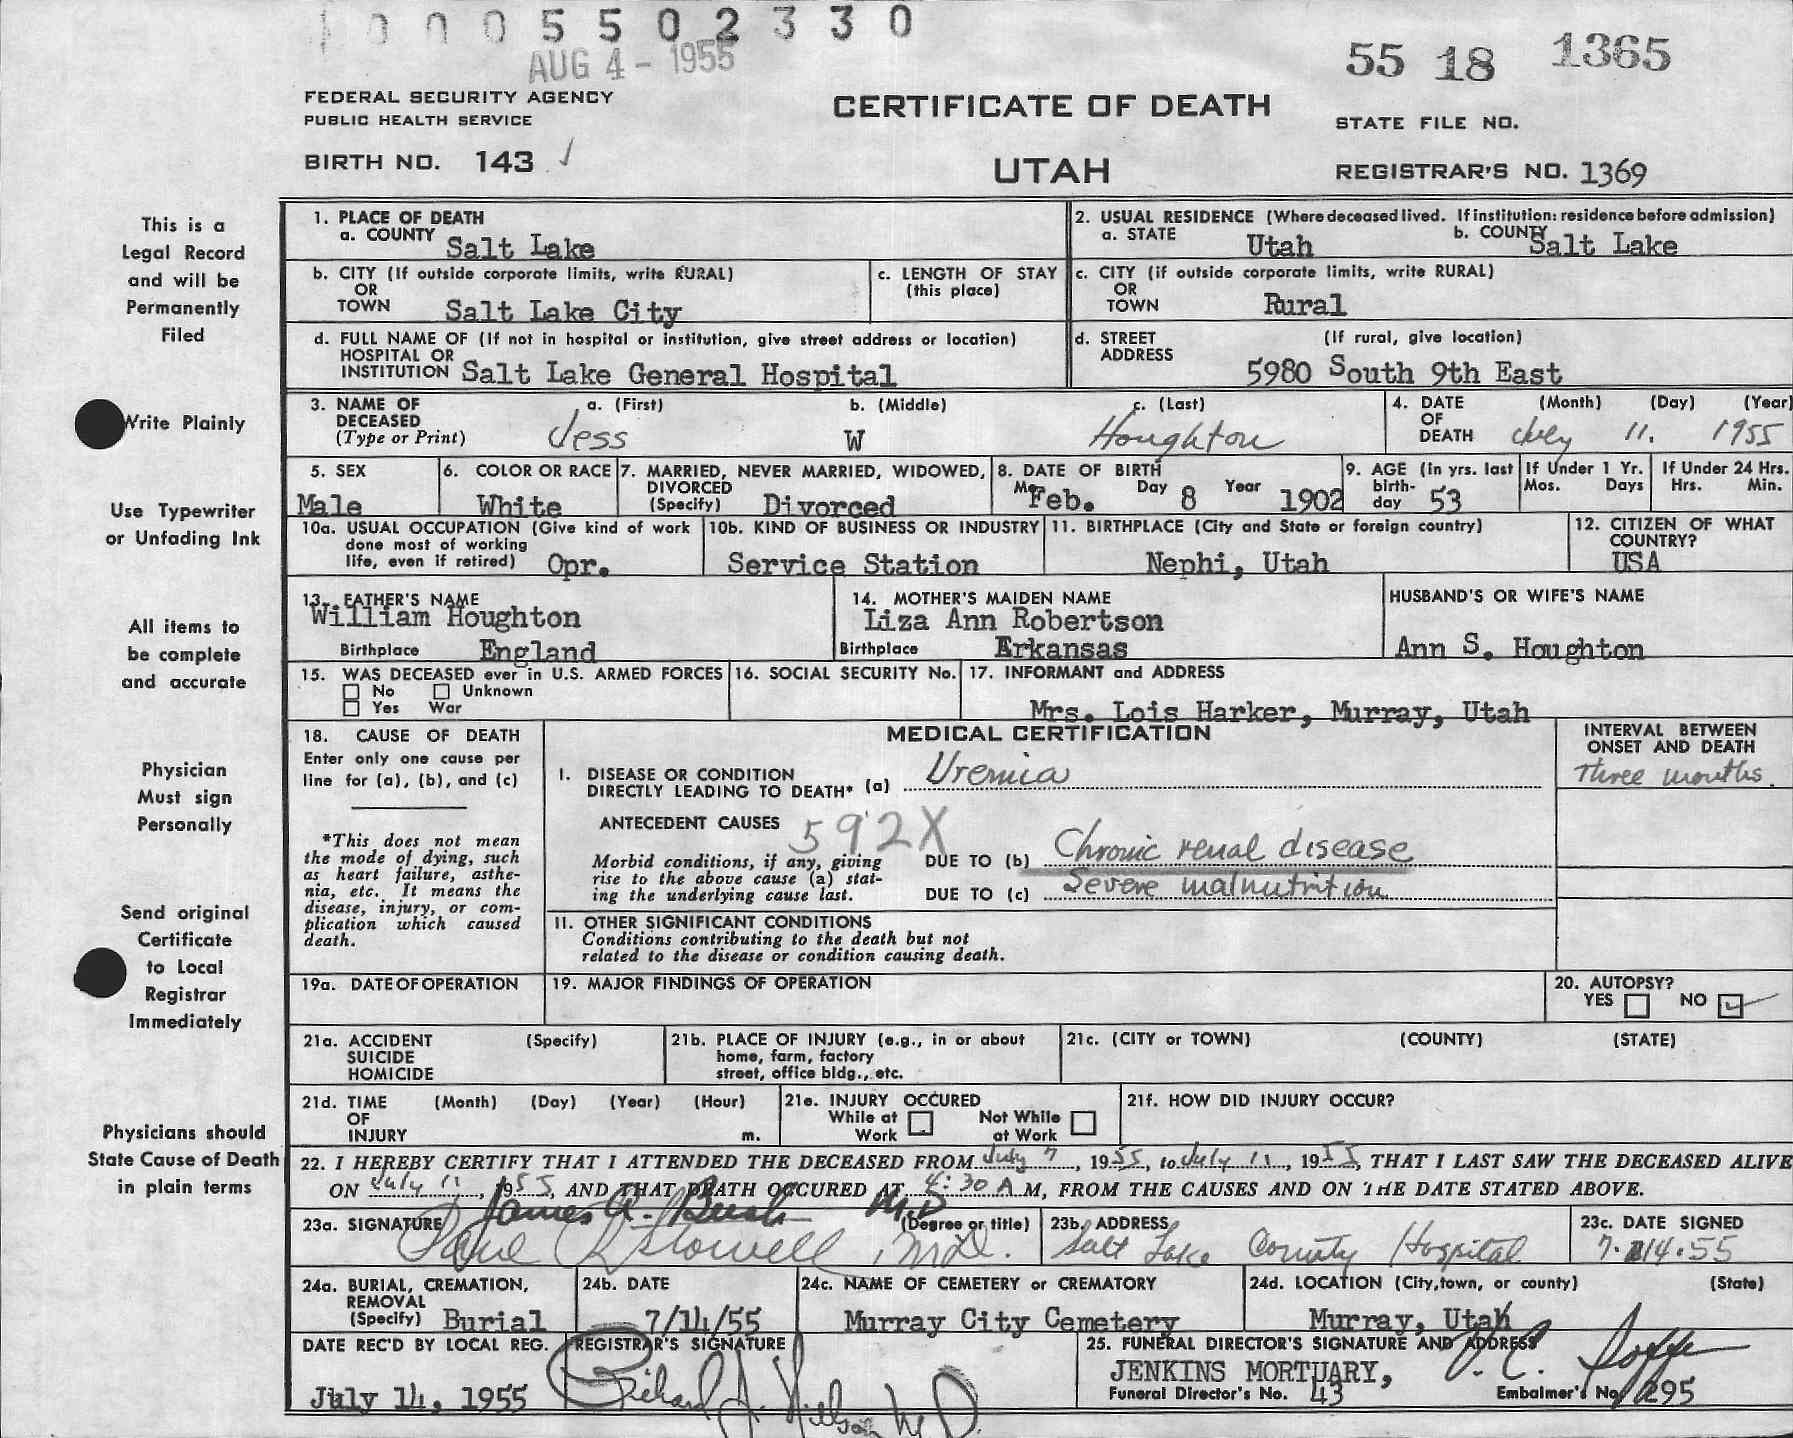 1 0 0 0 5 5 0 2 3 3 0
AUG 4 - 1955
55 18 1365
FEDERAL SECURITY AGENCY
PUBLIC HEALTH SERVICE
CERTIFICATE OF DEATH
STATE FILE NO.
BIRTH NO. 143
UTAH
REGISTRAR'S NO. 1369
This is a
Legal Record
and will be
Permanently
Filed
Write Plainly
Use Typewriter
or Unfading Ink
All items to
be complete
and accurate
Physician
Must sign
Personally
Send original
Certificate
to Local
Registrar
Immediately
Physicians should
State Cause of Death
in plain terms
1. PLACE OF DEATH
a. COUNTY Salt Lake
2. USUAL RESIDENCE (Where deceased lived. If institution: residence before admission)
a. STATE Utah b. COUNTY Salt Lake
b. CITY (If outside corporate limits, write RURAL)
OR
TOWN Salt Lake City
c. LENGTH OF STAY
(this place)
c. CITY (if outside corporate limits, write RURAL)
OR
TOWN Rural
d. FULL NAME OF (If not in hospital or institution, give street address or location)
HOSPITAL OR
INSTITUTION Salt Lake General Hospital
d. STREET (If rural, give location)
ADDRESS
5980 South 9th East
3. NAME OF DECEASED
(Type or Print)
a. (First) Jess
b. (Middle) W
c. (Last) Houghton
4. DATE OF DEATH (Month) (Day) (Year)
July 11. 1955
5. SEX
Male
6. COLOR OR RACE
White
7. MARRIED, NEVER MARRIED, WIDOWED,
DIVORCED
(Specify) Divorced
8. DATE OF BIRTH
Mo. Feb. Day 8 Year 1902
9. AGE (in yrs. last
birth-
day 53
If Under 1 Yr.
Mos. Days
If Under 24 Hrs.
Hrs. Min.
10a. USUAL OCCUPATION (Give kind of work
done most of working
life, even if retired) Opr.
10b. KIND OF BUSINESS OR INDUSTRY
Service Station
11. BIRTHPLACE (City and State or foreign country)
Nephi, Utah
12. CITIZEN OF WHAT
COUNTRY?
USA
13. FATHER'S NAME
William Houghton
Birthplace England
14. MOTHER'S MAIDEN NAME
Liza Ann Robertson
Birthplace Erkansas
HUSBAND'S OR WIFE'S NAME
Ann S. Houghton
15. WAS DECEASED ever in U.S. ARMED FORCES
No Unknown
Yes War
16. SOCIAL SECURITY No.
17. INFORMANT and ADDRESS
Mrs. Lois Harker, Murray, Utah
18. CAUSE OF DEATH
Enter only one cause per
line for (a), (b), and (c)
*This does not mean
the mode of dying, such
as heart failure, asthe-
nia, etc. It means the
disease, injury, or com-
plication which caused
death.
MEDICAL CERTIFICATION
INTERVAL BETWEEN
ONSET AND DEATH
I. DISEASE OR CONDITION
DIRECTLY LEADING TO DEATH* (a) Uremia
Three months.
ANTECEDENT CAUSES 592X
Morbid conditions, if any, giving
rise to the above cause (a) stat-
ing the underlying cause last.
DUE TO (b) Chronic renal disease
DUE TO (c) Severe malnutrition
II. OTHER SIGNIFICANT CONDITIONS
Conditions contributing to the death but not
related to the disease or condition causing death.
19a. DATE OF OPERATION
19. MAJOR FINDINGS OF OPERATION
20. AUTOPSY?
YES NO
21a. ACCIDENT (Specify)
SUICIDE
HOMICIDE
21b. PLACE OF INJURY (e.g., in or about
home, farm, factory
street, office bldg., etc.
21c. (CITY or TOWN) (COUNTY) (STATE)
21d. TIME (Month) (Day) (Year) (Hour)
OF
INJURY m.
21e. INJURY OCCURED
While at Work
Not While at Work
21f. HOW DID INJURY OCCUR?
22. I HEREBY CERTIFY THAT I ATTENDED THE DECEASED FROM July 7, 1955, to July 11, 1955, THAT I LAST SAW THE DECEASED ALIVE
ON July 11, 1955, AND THAT DEATH OCCURED AT 4:30 A M, FROM THE CAUSES AND ON THE DATE STATED ABOVE.
James A. M.D
23a. SIGNATURE (Degree or title)
M.D.
23b. ADDRESS
Salt Lake County Hospital
23c. DATE SIGNED
7.14.55
24a. BURIAL, CREMATION,
REMOVAL
(Specify) Burial
24b. DATE
7/14/55
24c. NAME OF CEMETERY or CREMATORY
Murray City Cemetery
24d. LOCATION (City, town, or county) (State)
Murray, Utah
DATE REC'D BY LOCAL REG.
July 14, 1955
REGISTRAR'S SIGNATURE
Richard M.D.
25. FUNERAL DIRECTOR'S SIGNATURE AND ADDRESS
JENKINS MORTUARY,
Funeral Director's No. 43
Embalmer's No. 295